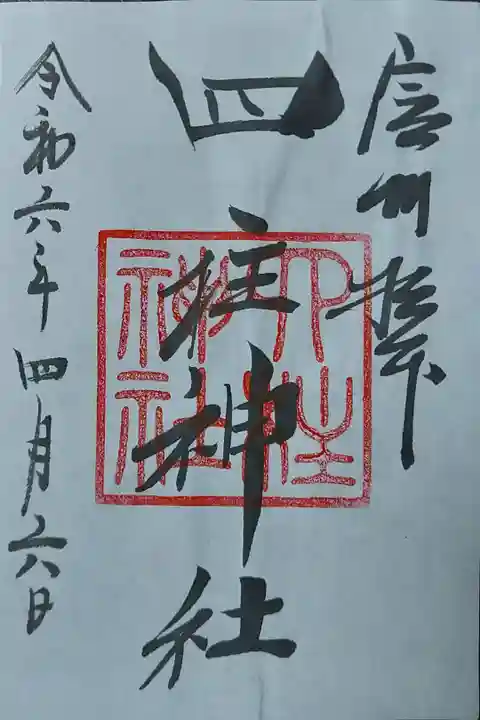 信州松本
四柱神社
四柱
神社
令和六年四月六日